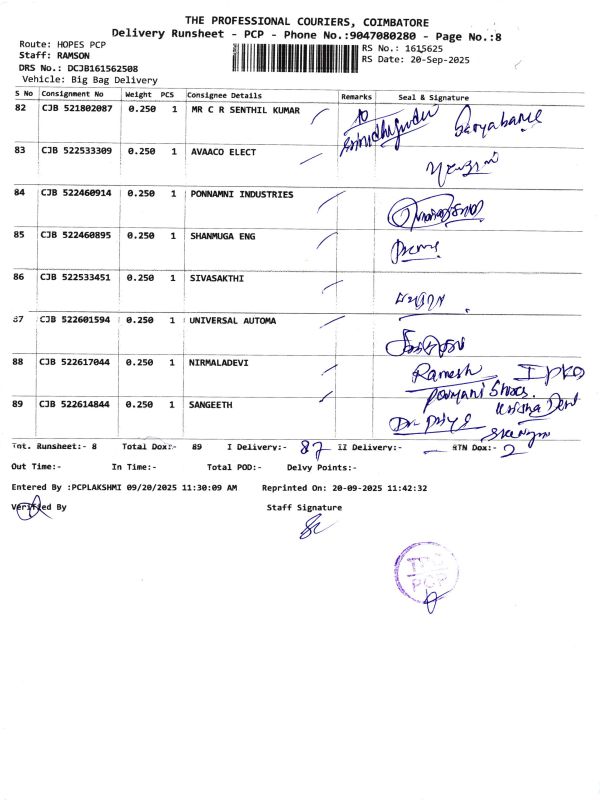 THE PROFESSIONAL COURIERS, COIMBATORE
Delivery Runsheet - PCP - Phone No.:9047080280 - Page No.:8
Route: HOPES PCP
RS No.: 1615625
Staff: RAMSON
RS Date: 20-Sep-2025
DRS No.: DCJB161562508
Vehicle: Big Bag Delivery
S No Consignment No Weight PCS Consignee Details Remarks Seal & Signature
82 CJB 521802087 0.250 1 MR C R SENTHIL KUMAR
83 CJB 522533309 0.250 1 AVAACO ELECT
84 CJB 522460914 0.250 1 PONNAMNI INDUSTRIES
85 CJB 522460895 0.250 1 SHANMUGA ENG
86 CJB 522533451 0.250 1 SIVASAKTHI
87 CJB 522601594 0.250 1 UNIVERSAL AUTOMA
88 CJB 522617044 0.250 1 NIRMALADEVI Ramesh
89 CJB 522614844 0.250 1 SANGEETH
Tot. Runsheet:- 8 Total Dox:- 89 I Delivery:- 87 II Delivery:- — RTN Dox:- 2
Out Time:- In Time:- Total POD:- Delvy Points:-
Entered By :PCPLAKSHMI 09/20/2025 11:30:09 AM Reprinted On: 20-09-2025 11:42:32
Verified By Staff Signature
PCP